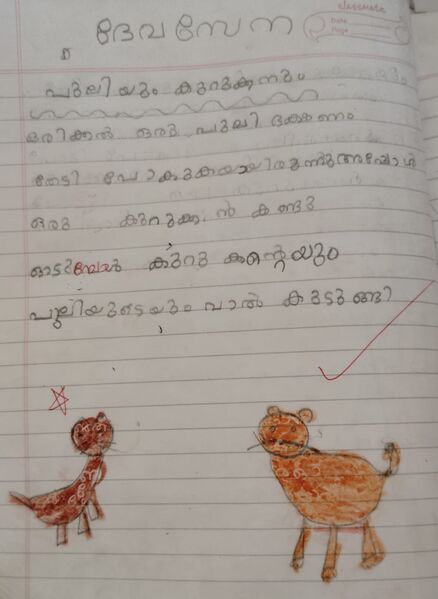 classmate
Date
Page
ദേവസേന
പുലിയും കുറുക്കനും
ഒരിക്കൽ ഒരു പുലി ഭക്ഷണം
തേടി പോകുകയായിരുന്നു അപ്പോൾ
ഒരു കുറുക്കൻ കണ്ടു
ഓടുമ്പോൾ കുറുക്കന്റെയും
പുലിയുടെയും വാൽ കുടുങ്ങി